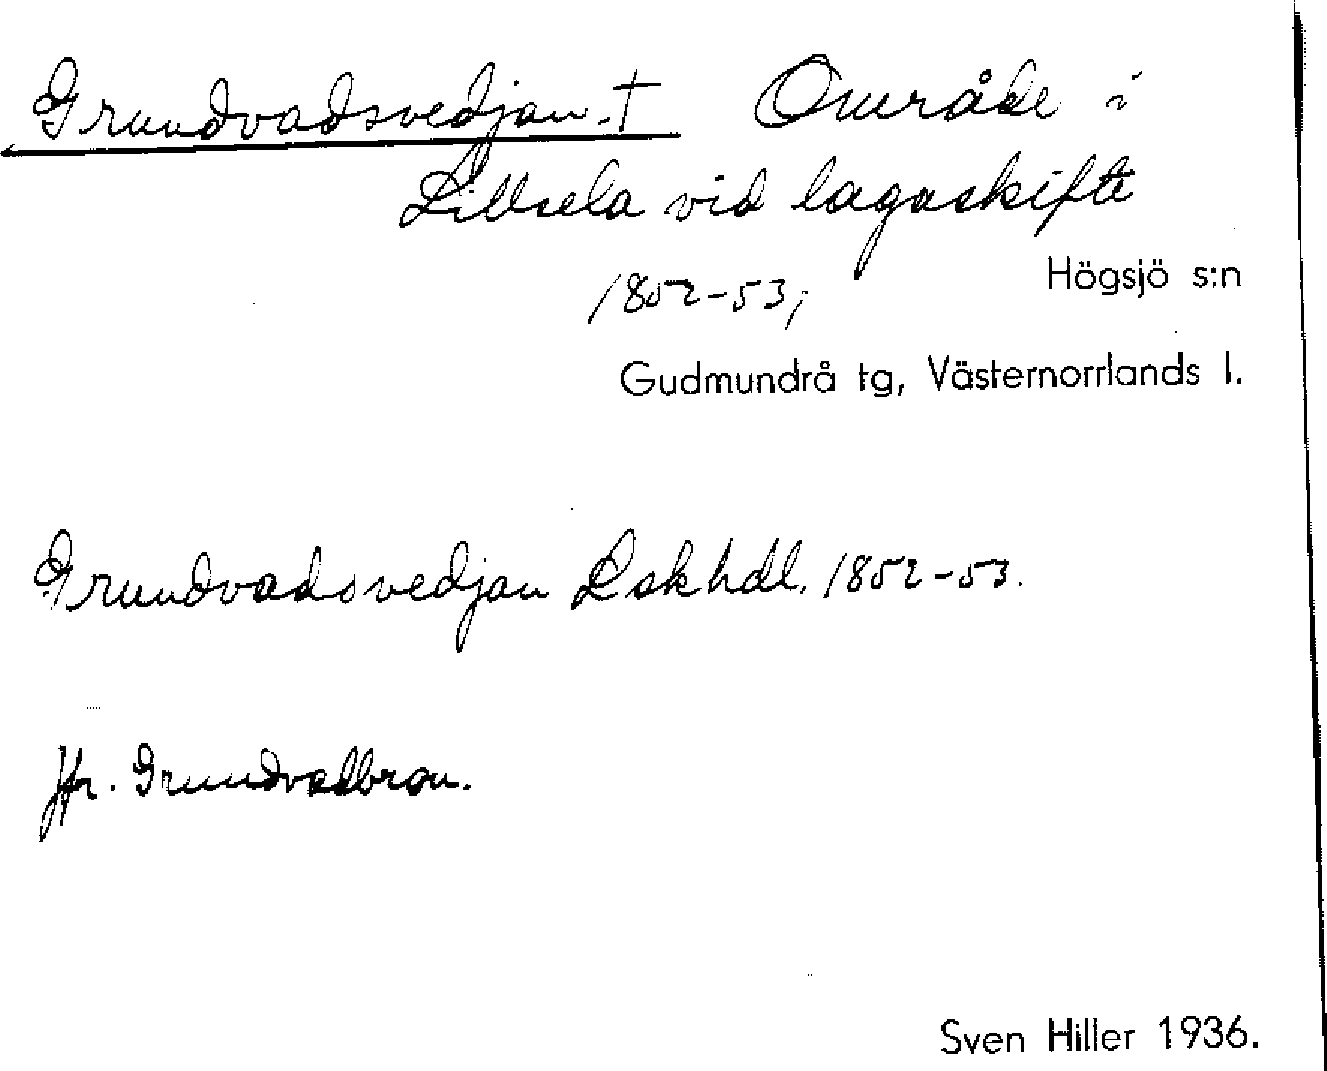 Grundvadsvedjan. † Område i
Lillsela vid lagaskifte
1852-53;
Högsjö s:n
Gudmundrå tg, Västernorrlands l.
Grundvadsvedjan Lskhdl. 1852-53.
Jfr. Grundvadbron.
Sven Hiller 1936.